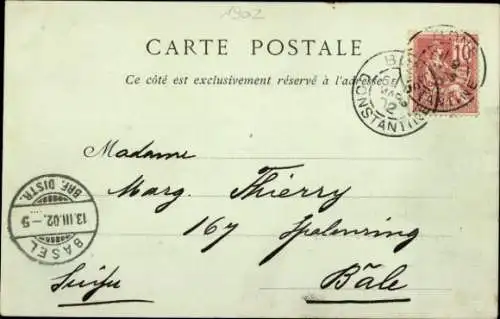 1902
CARTE POSTALE
Ce côté est exclusivement réservé à l'adresse
10
CONSTANTINE
Madame
Marg. Thierry
167 Spalenring
Bâle
Suisse
BASEL
13.III.02.-5
BRF. DISTR.